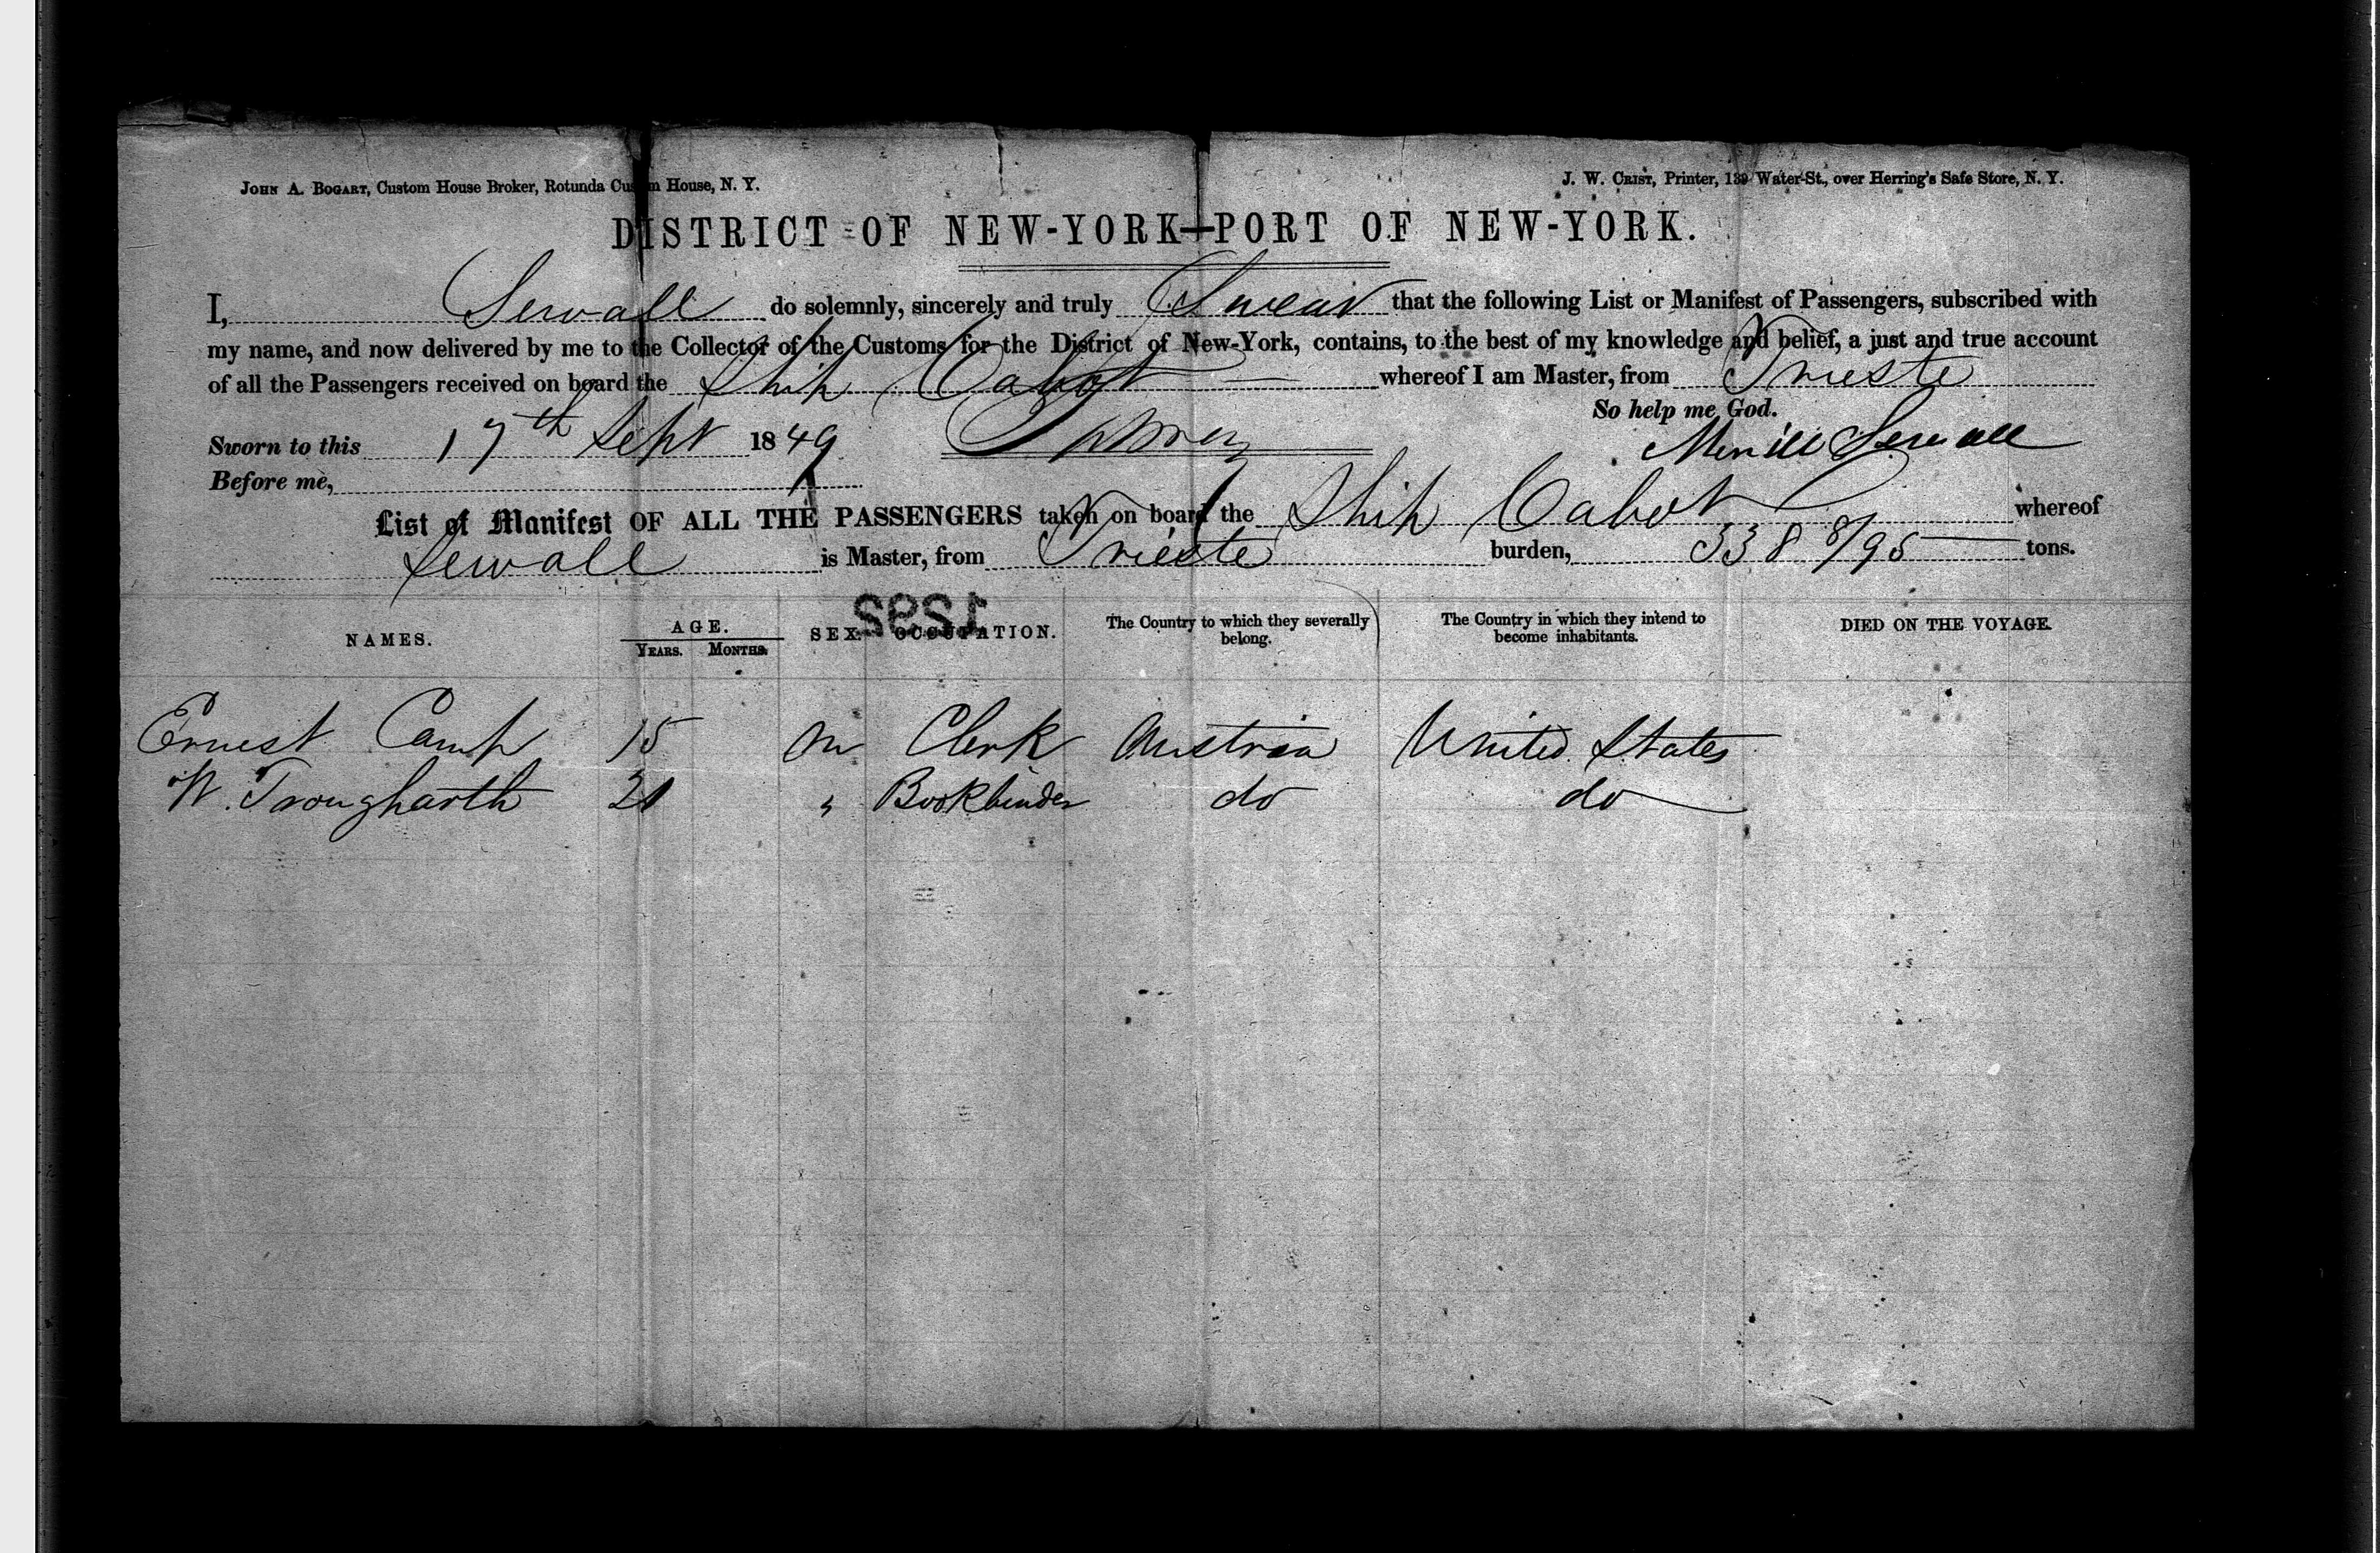 JOHN A. BOGART, Custom House Broker, Rotunda Custom House, N. Y.
J. W. CRIST, Printer, 139 Water-St., over Herring's Safe Store, N. Y.
DISTRICT OF NEW-YORK—PORT OF NEW-YORK.
I, Sewall do solemnly, sincerely and truly Swear that the following List or Manifest of Passengers, subscribed with
my name, and now delivered by me to the Collector of the Customs for the District of New-York, contains, to the best of my knowledge and belief, a just and true account
of all the Passengers received on board the Ship Cabot whereof I am Master, from Trieste
So help me God.
Sworn to this 17th Sept 1849
Merrill Sewall
Before me,
List of Manifest OF ALL THE PASSENGERS taken on board the Ship Cabot whereof
Sewall is Master, from Trieste burden, 338 8/95 tons.
1292
NAMES. AGE. YEARS. MONTHS. SEX. OCCUPATION. The Country to which they severally belong. The Country in which they intend to become inhabitants. DIED ON THE VOYAGE.
Ernest Camp 15 m Clerk Austria United States
W. Trougharth 21 " Bookbinder do do